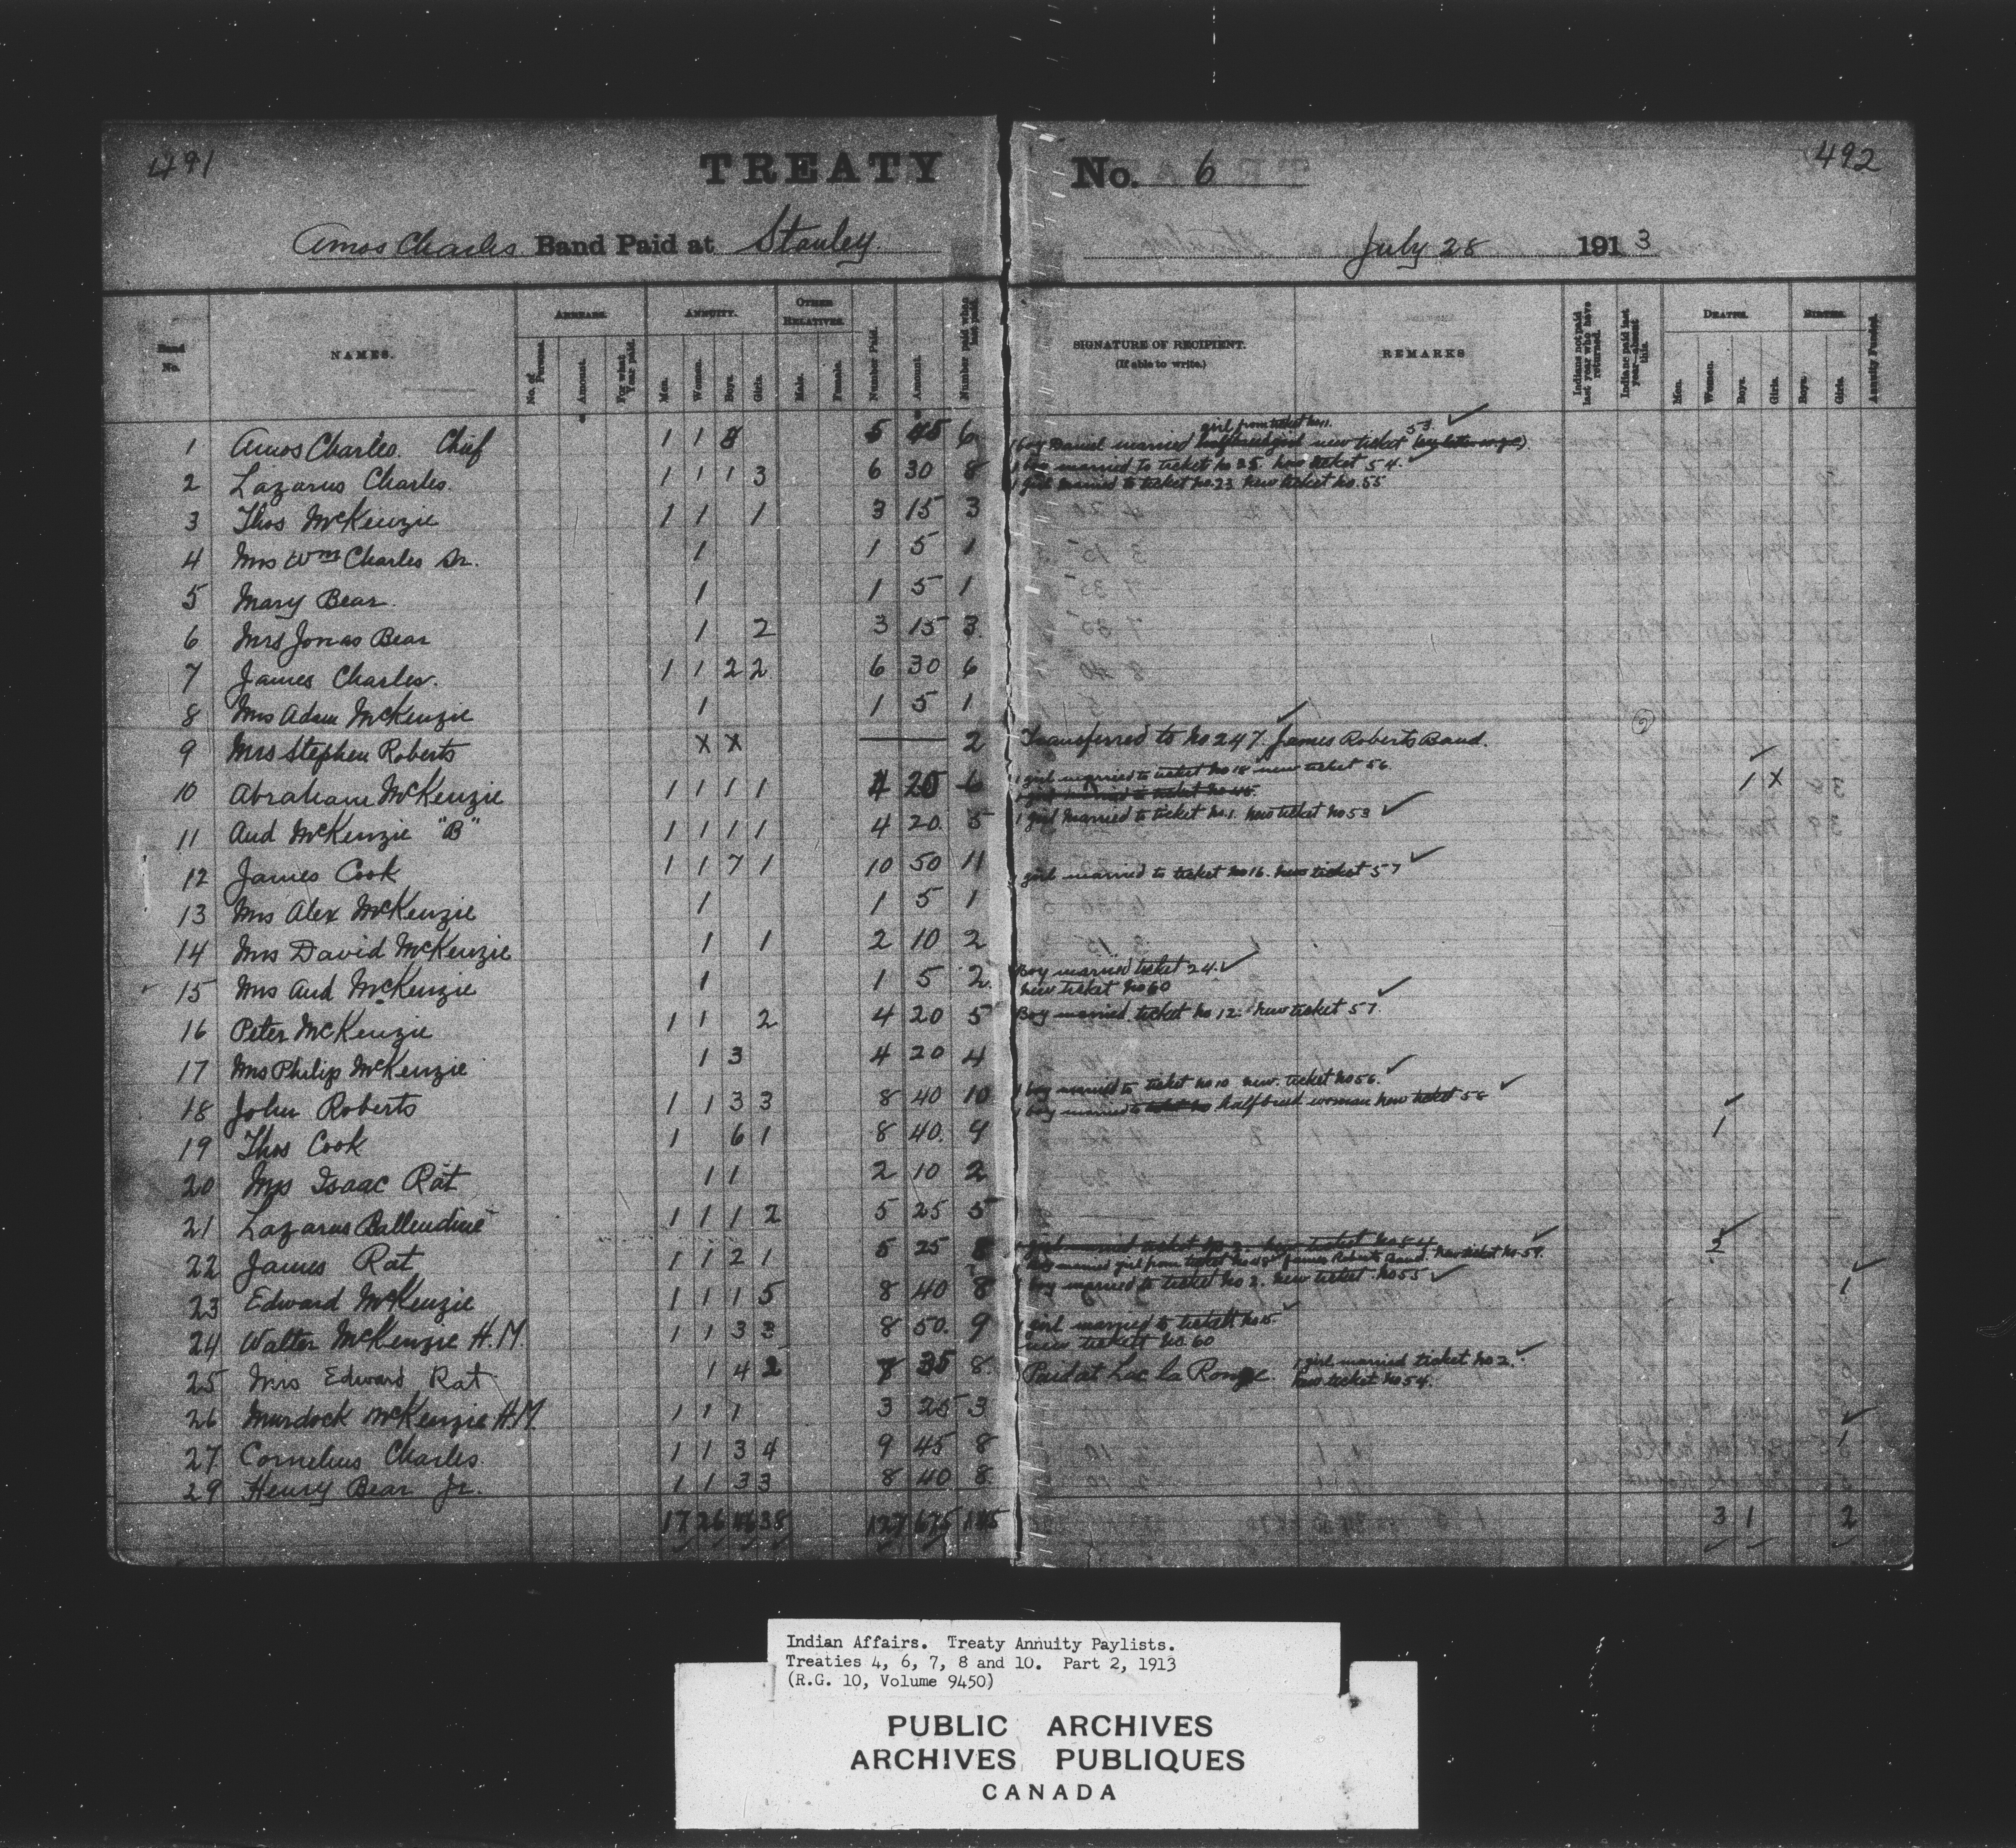 491
TREATY No. 6
492
Amos Charles Band Paid at Stanley July 28 1913
Band No. NAMES. ARREARS. No. of Persons. Amount. For what Year paid. ANNUITY. Men. Women. Boys. Girls. OTHER RELATIVES. Male. Female. Number Paid. Amount. Number paid when last paid
SIGNATURE OF RECIPIENT. (If able to write.) REMARKS Indians not paid last year who have returned. Indians paid last year—absent this. DEATHS. Men. Women. Boys. Girls. BIRTHS. Boys. Girls. Annuity Funded.
girl from ticket No 11.
1 Amos Charles. Chief 1 1 5 45 6 1 boy Daniel married new ticket 53
2 Lazarus Charles. 1 1 1 3 6 30 8 1 boy married to ticket No 25. New ticket 54.
1 girl married to ticket No. 23 New ticket No. 55
3 Thos McKenzie 1 1 1 3 15 3
4 Mrs Wm Charles Sr. 1 1 5 1
5 Mary Bear. 1 1 5 1
6 Mrs Jonas Bear 1 2 3 15 3
7 James Charles. 1 1 2 2 6 30 6
8 Mrs Adam McKenzie 1 1 5 1
9 Mrs Stephen Roberts X X 2 Transferred to No 247. James Roberts Band.
10 Abraham McKenzie 1 1 1 1 4 20 6 1 girl married to ticket No 18 new ticket 56 1 X
11 And McKenzie "B" 1 1 1 1 4 20. 5 1 girl Married to ticket No. 1. New ticket No 53
12 James Cook 1 1 7 1 10 50 11 1 girl married to ticket No 16. New ticket 57
13 Mrs Alex McKenzie 1 1 5 1
14 Mrs David McKenzie 1 1 2 10 2
15 Mrs And McKenzie 1 1 5 2. Boy married ticket 24.
New ticket No 60
16 Peter McKenzie 1 1 2 4 20 5 Boy married ticket No 12. New ticket 57.
17 Mrs Philip McKenzie 1 3 4 20 4
18 John Roberts 1 1 3 3 8 40 10 1 boy married to ticket No 10 New ticket No 56.
1 boy married to halfbreed woman New ticket 58
19 Thos Cook 1 6 1 8 40. 9 1
20 Mrs Isaac Rat 1 1 2 10 2
21 Lazarus Ballendine 1 1 1 2 5 25 5
22 James Rat 1 1 2 1 5 25 8 1 boy married girl from ticket No 48 James Roberts Band. New ticket No. 59. 2
23 Edward McKenzie 1 1 1 5 8 40 8 1 boy married to ticket No 2. New ticket No 55 1
24 Walter McKenzie H.M. 1 1 3 3 8 50. 9 1 girl married to ticket No 15.
New ticket No. 60
25 Mrs Edward Rat 1 4 2 7 35 8. Paid at Lac la Ronge. 1 girl married ticket No 2.
New ticket No 54.
26 Murdock McKenzie H.M. 1 1 1 3 25 3
27 Cornelius Charles. 1 1 3 4 9 45 8 1
29 Henry Bear Jr. 1 1 3 3 8 40 8.
17 26 46 38 127 675 145 3 1 2
Indian Affairs. Treaty Annuity Paylists.
Treaties 4, 6, 7, 8 and 10. Part 2, 1913
(R.G. 10, Volume 9450)
PUBLIC ARCHIVES
ARCHIVES PUBLIQUES
CANADA